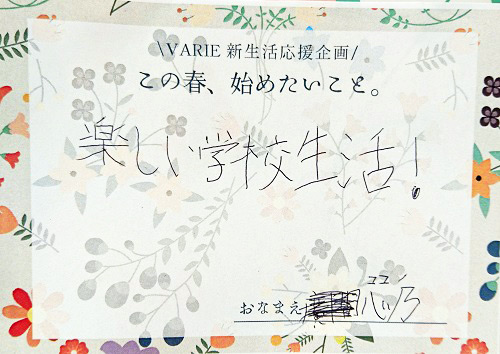 \VARIE 新生活応援企画/
この春、始めたいこと。
楽しい学校生活!
ココノ
おなまえ 心乃